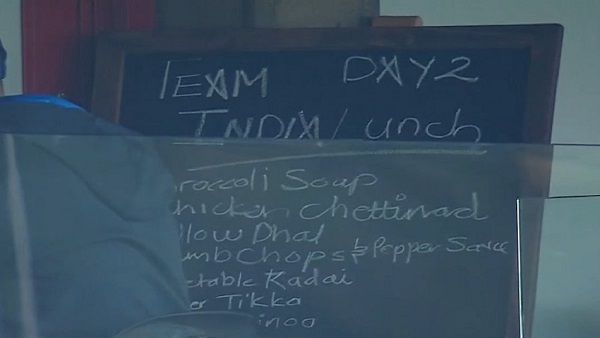 TEAM DAY 2
INDIA Lunch
roccoli Soup
hicken Chettinad
llow Dhal
mb Chops & Pepper Sauce
etable Kadai
er Tikka
inoa